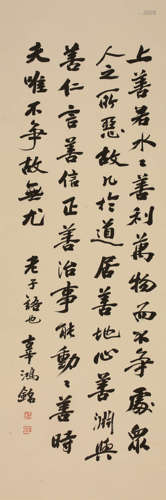 上善若水〻善利萬物而不爭處眾
人之所惡故几於道居善地心善淵與
善仁言善信正善治事能動〻善時
夫唯不爭故無尤 老子語也 辜鴻銘